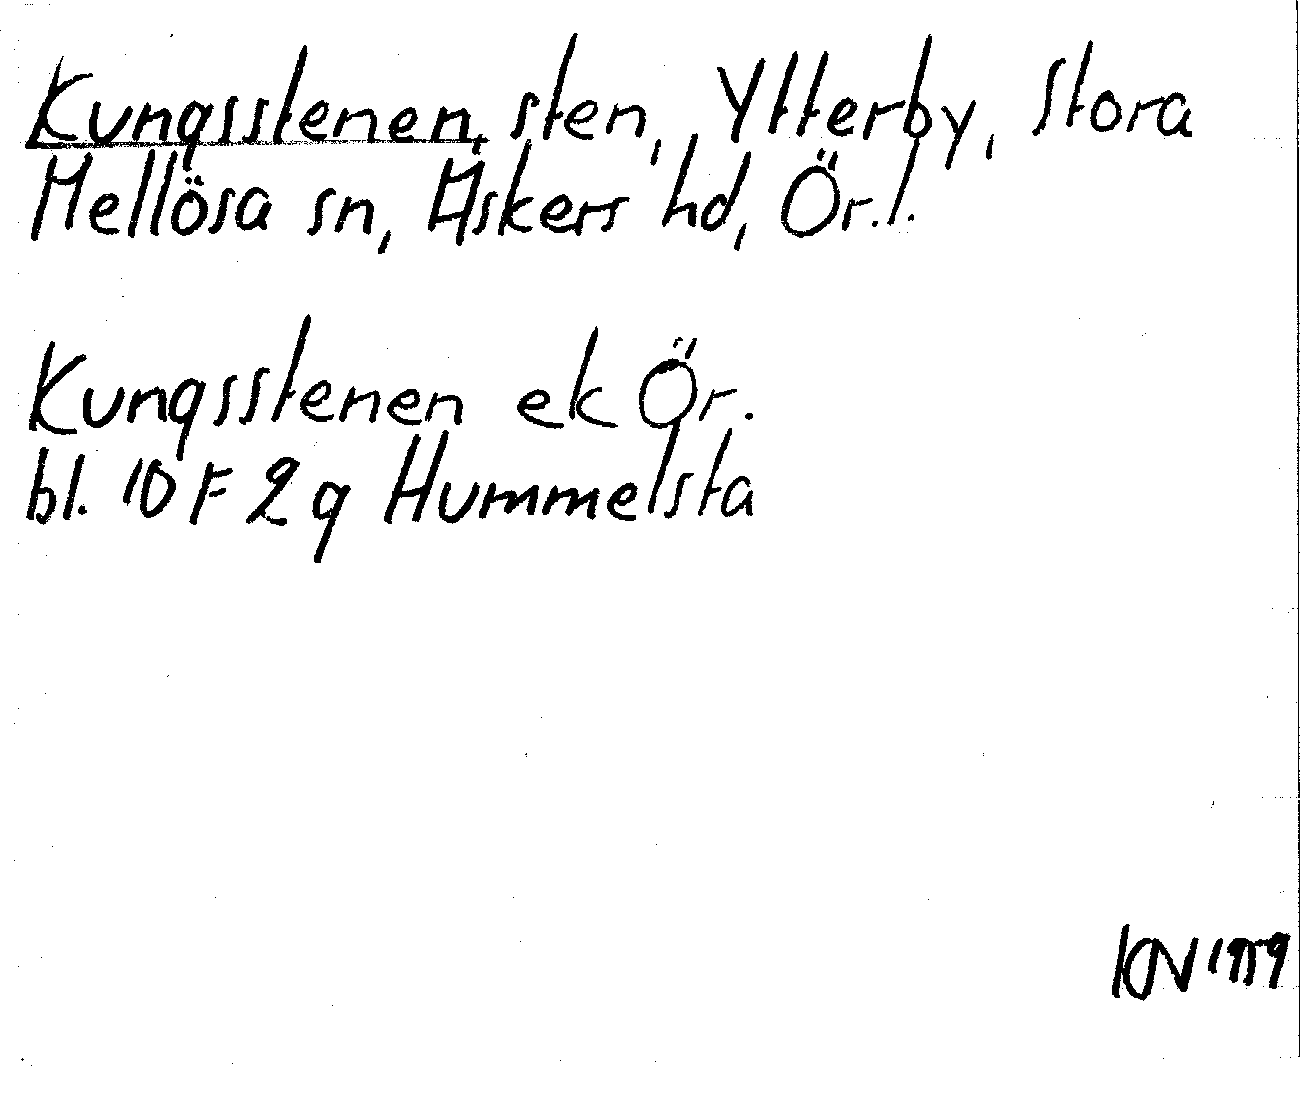 Kungsstenen, sten, Ytterby, Stora
Mellösa sn, Askers hd, Ör.l.
Kungsstenen ek Ör.
bl. 10 F 2 g Hummelsta